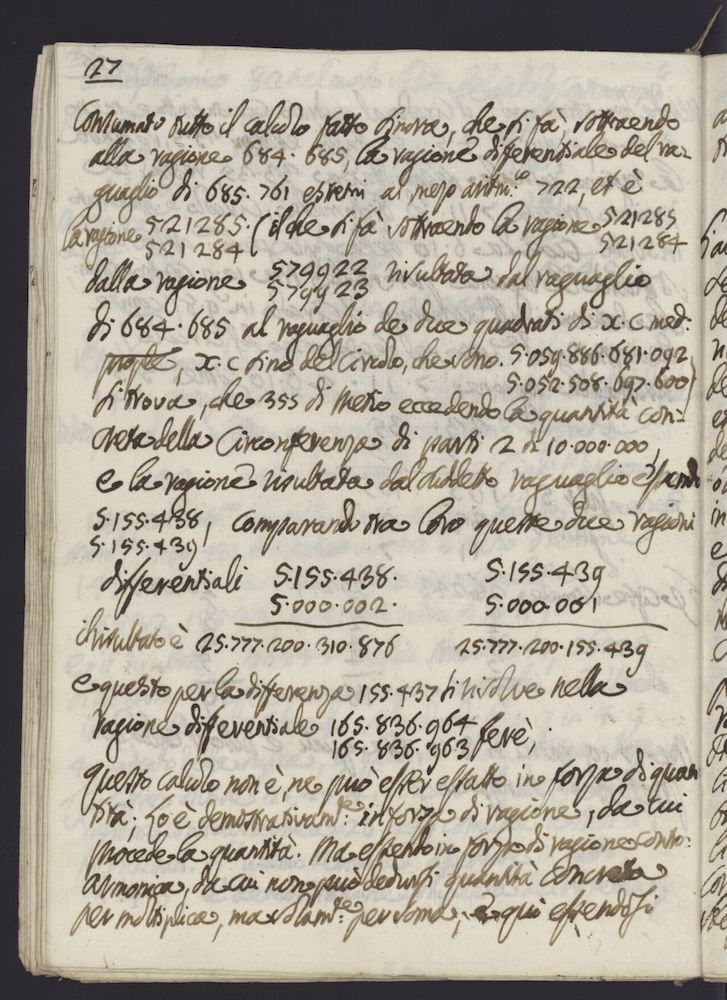 27
Consumato tutto il calcolo fatto sinora, che si fà, sottraendo
alla ragione 684. 685, la ragione differentiale del ra-
guaglio di 685. 761 estremi al mezo aritm.co 722, et è
la ragione 521285. (il che si fà sottraendo la ragione 521285
521284 521284
dalla ragione 579922 risultata dal raguaglio
579923
di 684. 685 al raguaglio de due quadrati di x. c med:
x. c sino del Circolo, che sono. 5.059.886.681.092
5.052.508.697.600)
si trova, che 355 di Metio eccedendo la quantità con-
creta della Circonferenza di parti 2 in 10.000.000,
e la ragione risultata dal suddetto raguaglio essendo
5.155.438, comparando tra loro queste due ragioni
5.155.439
differentiali 5.155.438. 5.155.439
5.000.002. 5.000.001
il risultato è 25.777.200.310.876 25.777.200.155.439
e questo per la differenza 155.437 si risolve nella
ragione differentiale 165.836.964 ferè,
165.836.963
questo calcolo non è, ne può esser essatto in forza di quan
tità; lo è demostrativam.te in forza di ragione, da cui
procede la quantità. Ma essendo in forza di ragione contr:
armonica, da cui non può dedursi quantità concreta
per moltiplica, ma solam.te per soma, e quì essendosi